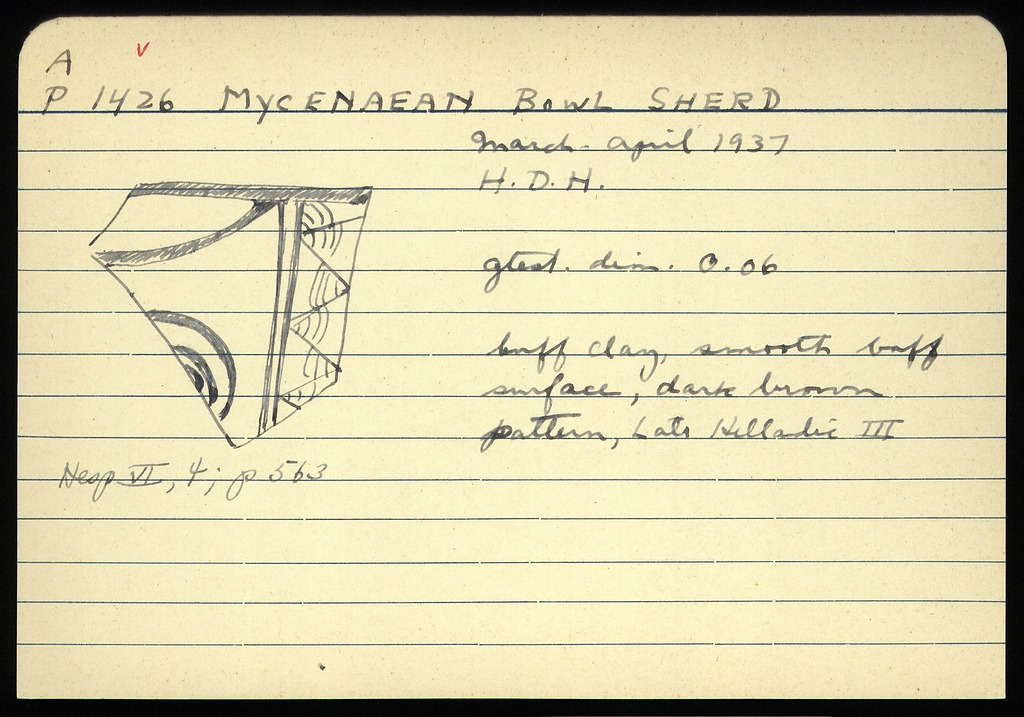 A v
P 1426 MYCENAEAN BOWL SHERD
March-April 1937
H.D.H.
gtest. dim. 0.06
buff clay, smooth buff
surface, dark brown
pattern, Late Helladic III
Hesp VI, 4; p 563